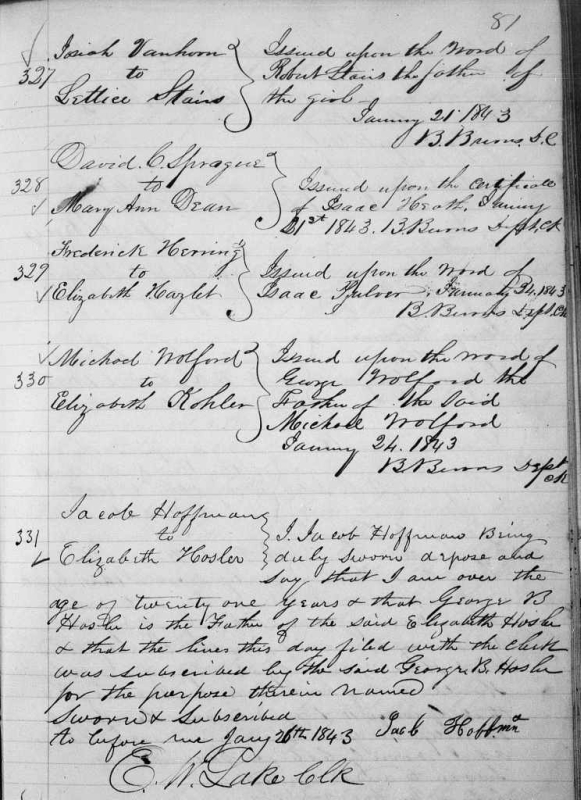 81
Isiah Vanhorn
327 to
Lettice Stairs
Issued upon the word of
Robert Stairs the father of
the girl
January 21 1843
B. Burns D.C
David. C. Sprague
328 to
Mary Ann Dean
Issued upon the certificate
of Isaac Heath. January
21st 1843. B Burns Dept. Clk
Frederick Herring
329 to
Elizabeth Hazlet
Issued upon the word of
Isaac Pulver, January 24. 1843
B. Burns Dept. Clk
Michael Wolford
330 to
Elizabeth Kohler
Issued upon the word of
George Wolford the
Father of the Said
Michael Wolford
January 24. 1843
B. Burns Dept
Clk
Jacob Hoffman
331 to
Elizabeth Hosler
I. Jacob Hoffman Being
duly sworn depose and
say that I am over the
age of twenty one years & that George B
Hosler is the Father of the said Elizabeth Hosler
& that the lines this day filed with the clerk
was subscribed by the said George. B. Hosler
for the purpose therein named
Sworn & Subscribed
to before me Jany 26th 1843 Jacob Hoffman
E. W. Lake Clk